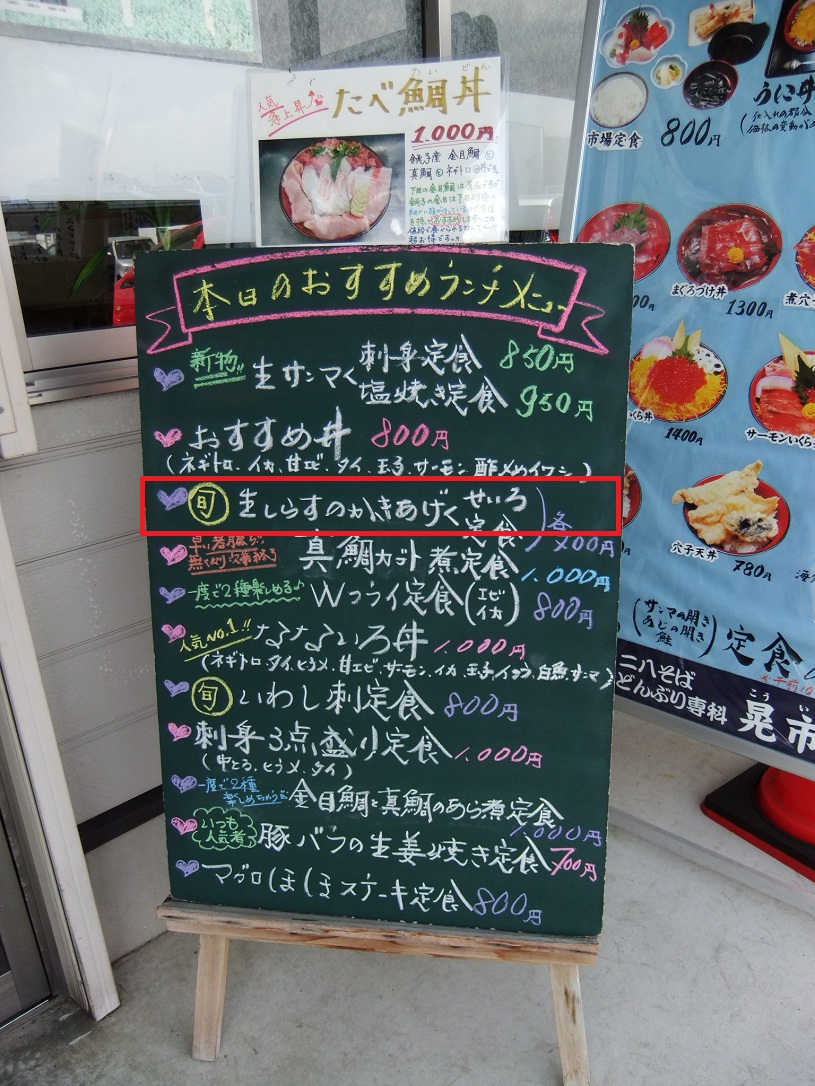 人気
急上昇
たべ鯛丼
たいどん
1.000円
銚子産 金目鯛と
真鯛とネギトロ
本日のおすすめランチメニュー
新物!! 生サンマ 刺身定食 850円
塩焼き定食 950円
おすすめ丼 800円
(ネギトロ、イカ、甘エビ、タイ、玉子、サーモン、酢〆めイワシ)
旬 生しらすのかきあげ せいろ
定食 各700円
早い者勝ち!!
無くなり次第終了
真鯛カブト煮定食 1.000円
一度で2種楽しめる♪ Wフライ定食(エビ
イカ) 800円
人気NO.1!! なないろ丼 1.000円
(ネギトロ、タイ、ヒラメ、甘エビ、サーモン、イカ、玉子、イクラ、白魚、サンマ)
旬 いわし刺定食 800円
刺身3点盛り定食 1.000円
(中とろ、ヒラメ、タイ)
一度で2種
金目鯛と真鯛のあら煮定食
1.000円
いつも
人気者 豚バラの生姜焼き定食 700円
マグロほほステーキ定食 800円
市場定食 800円
うに丼
まぐろづけ丼 1300円
いくら丼
1400円
サーモンいくら
穴子天丼 780円
サンマの開き
あじの開き
鮭
定食
二八そば
どんぶり専科
晃市